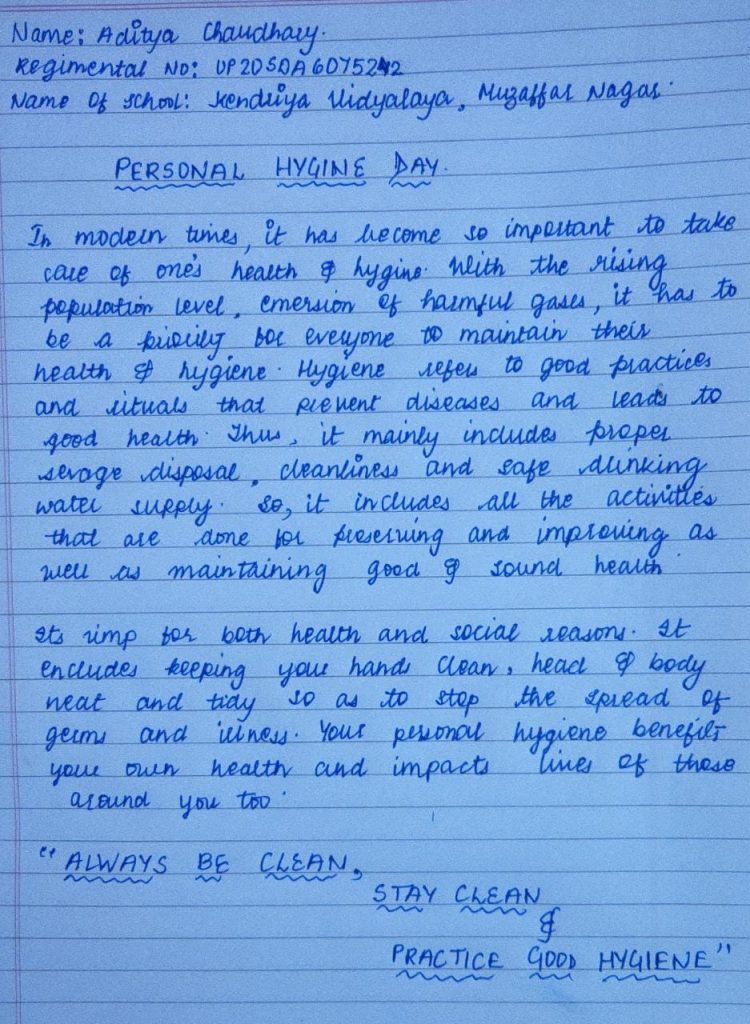 Name: Aditya Chaudhary.
Regimental No: UP20SDA6075242
Name Of School: Kendriya Vidyalaya, Muzaffar Nagar.
PERSONAL HYGINE DAY.
In modern times, it has become so important to take
care of one's health & hygine. With the rising
population level, emersion of harmful gases, it has to
be a priority for everyone to maintain their
health & hygiene. Hygiene refers to good practices
and rituals that prevent diseases and leads to
good health. Thus, it mainly includes proper
sevage disposal, cleanliness and safe drinking
water supply. So, it includes all the activities
that are done for preserving and improving as
well as maintaining good & sound health.
Its imp for both health and social reasons. It
encludes keeping your hands clean, head & body
neat and tidy so as to stop the spread of
germs and illness. Your personal hygiene benefits
your own health and impacts lives of those
around you too.
"ALWAYS BE CLEAN,
STAY CLEAN
&
PRACTICE GOOD HYGIENE"